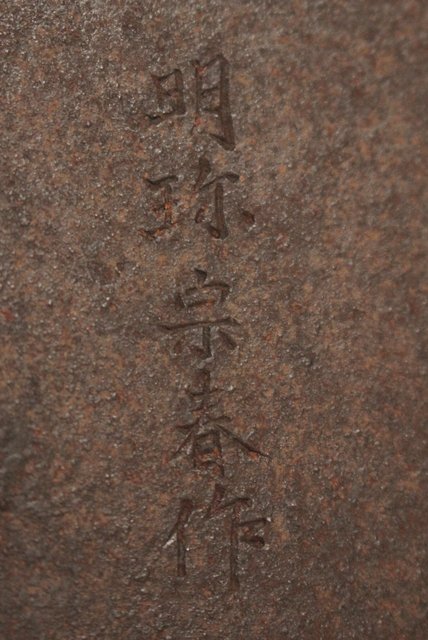 明珎宗春作